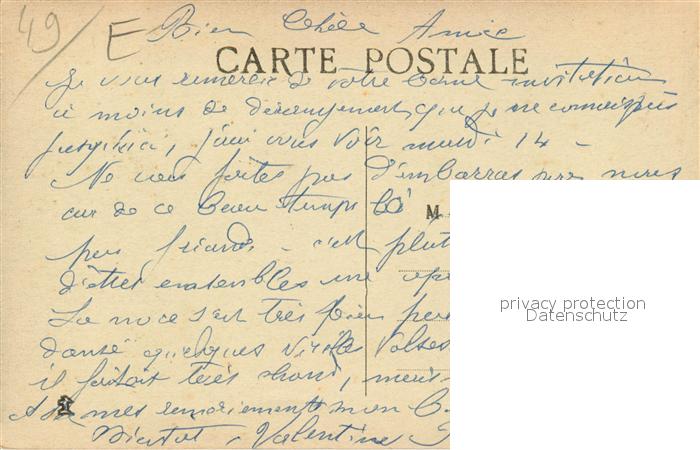 49 E Bien Chère Amie
CARTE POSTALE
Je vous remercie de votre bonne invitation
à moins de dérangement que je ne connais pas
jusqu'ici, j'irai vous voir mardi 14 -
Ne vous faites pas d'embarras pour nous
car de ce beau temps là
M
peu friands - c'est plut
d'être ensembles une
La noce s'est très bien
dansé quelques Valses
il faisait très chaud, mais
mes remerciements mon
privacy protection
Datenschutz
Bientot, Valentine